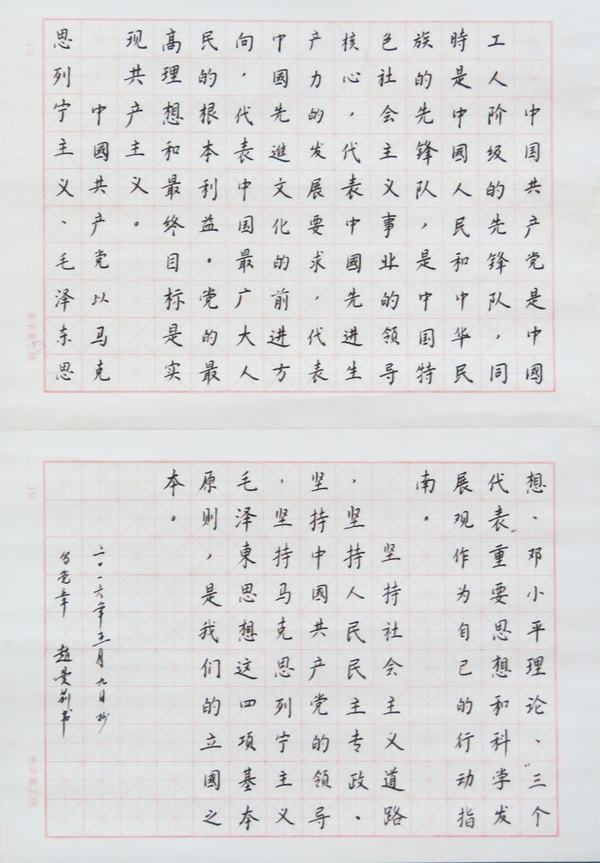 中国共产党是中國
工人阶级的先锋队，同
時是中國人民和中华民
族的先锋队，是中国特
色社会主义事业的领导
核心，代表中國先进生
产力的发展要求，代表
中國先進文化的前进方
向，代表中国最广大人
民的根本利益。党的最
高理想和最终目标是实
现共产主义。
中國共产党以马克
思列宁主义、毛泽东思
想、邓小平理论、“三个
代表”重要思想和科学发
展观作为自己的行动指
南。
坚持社会主义道路
，坚持人民民主专政、
坚持中國共产党的领导
，坚持马克思列宁主义
毛泽東思想这四项基本
原则，是我们的立國之
本。
二〇一六年五月九日抄
写党章 趙曼莉书